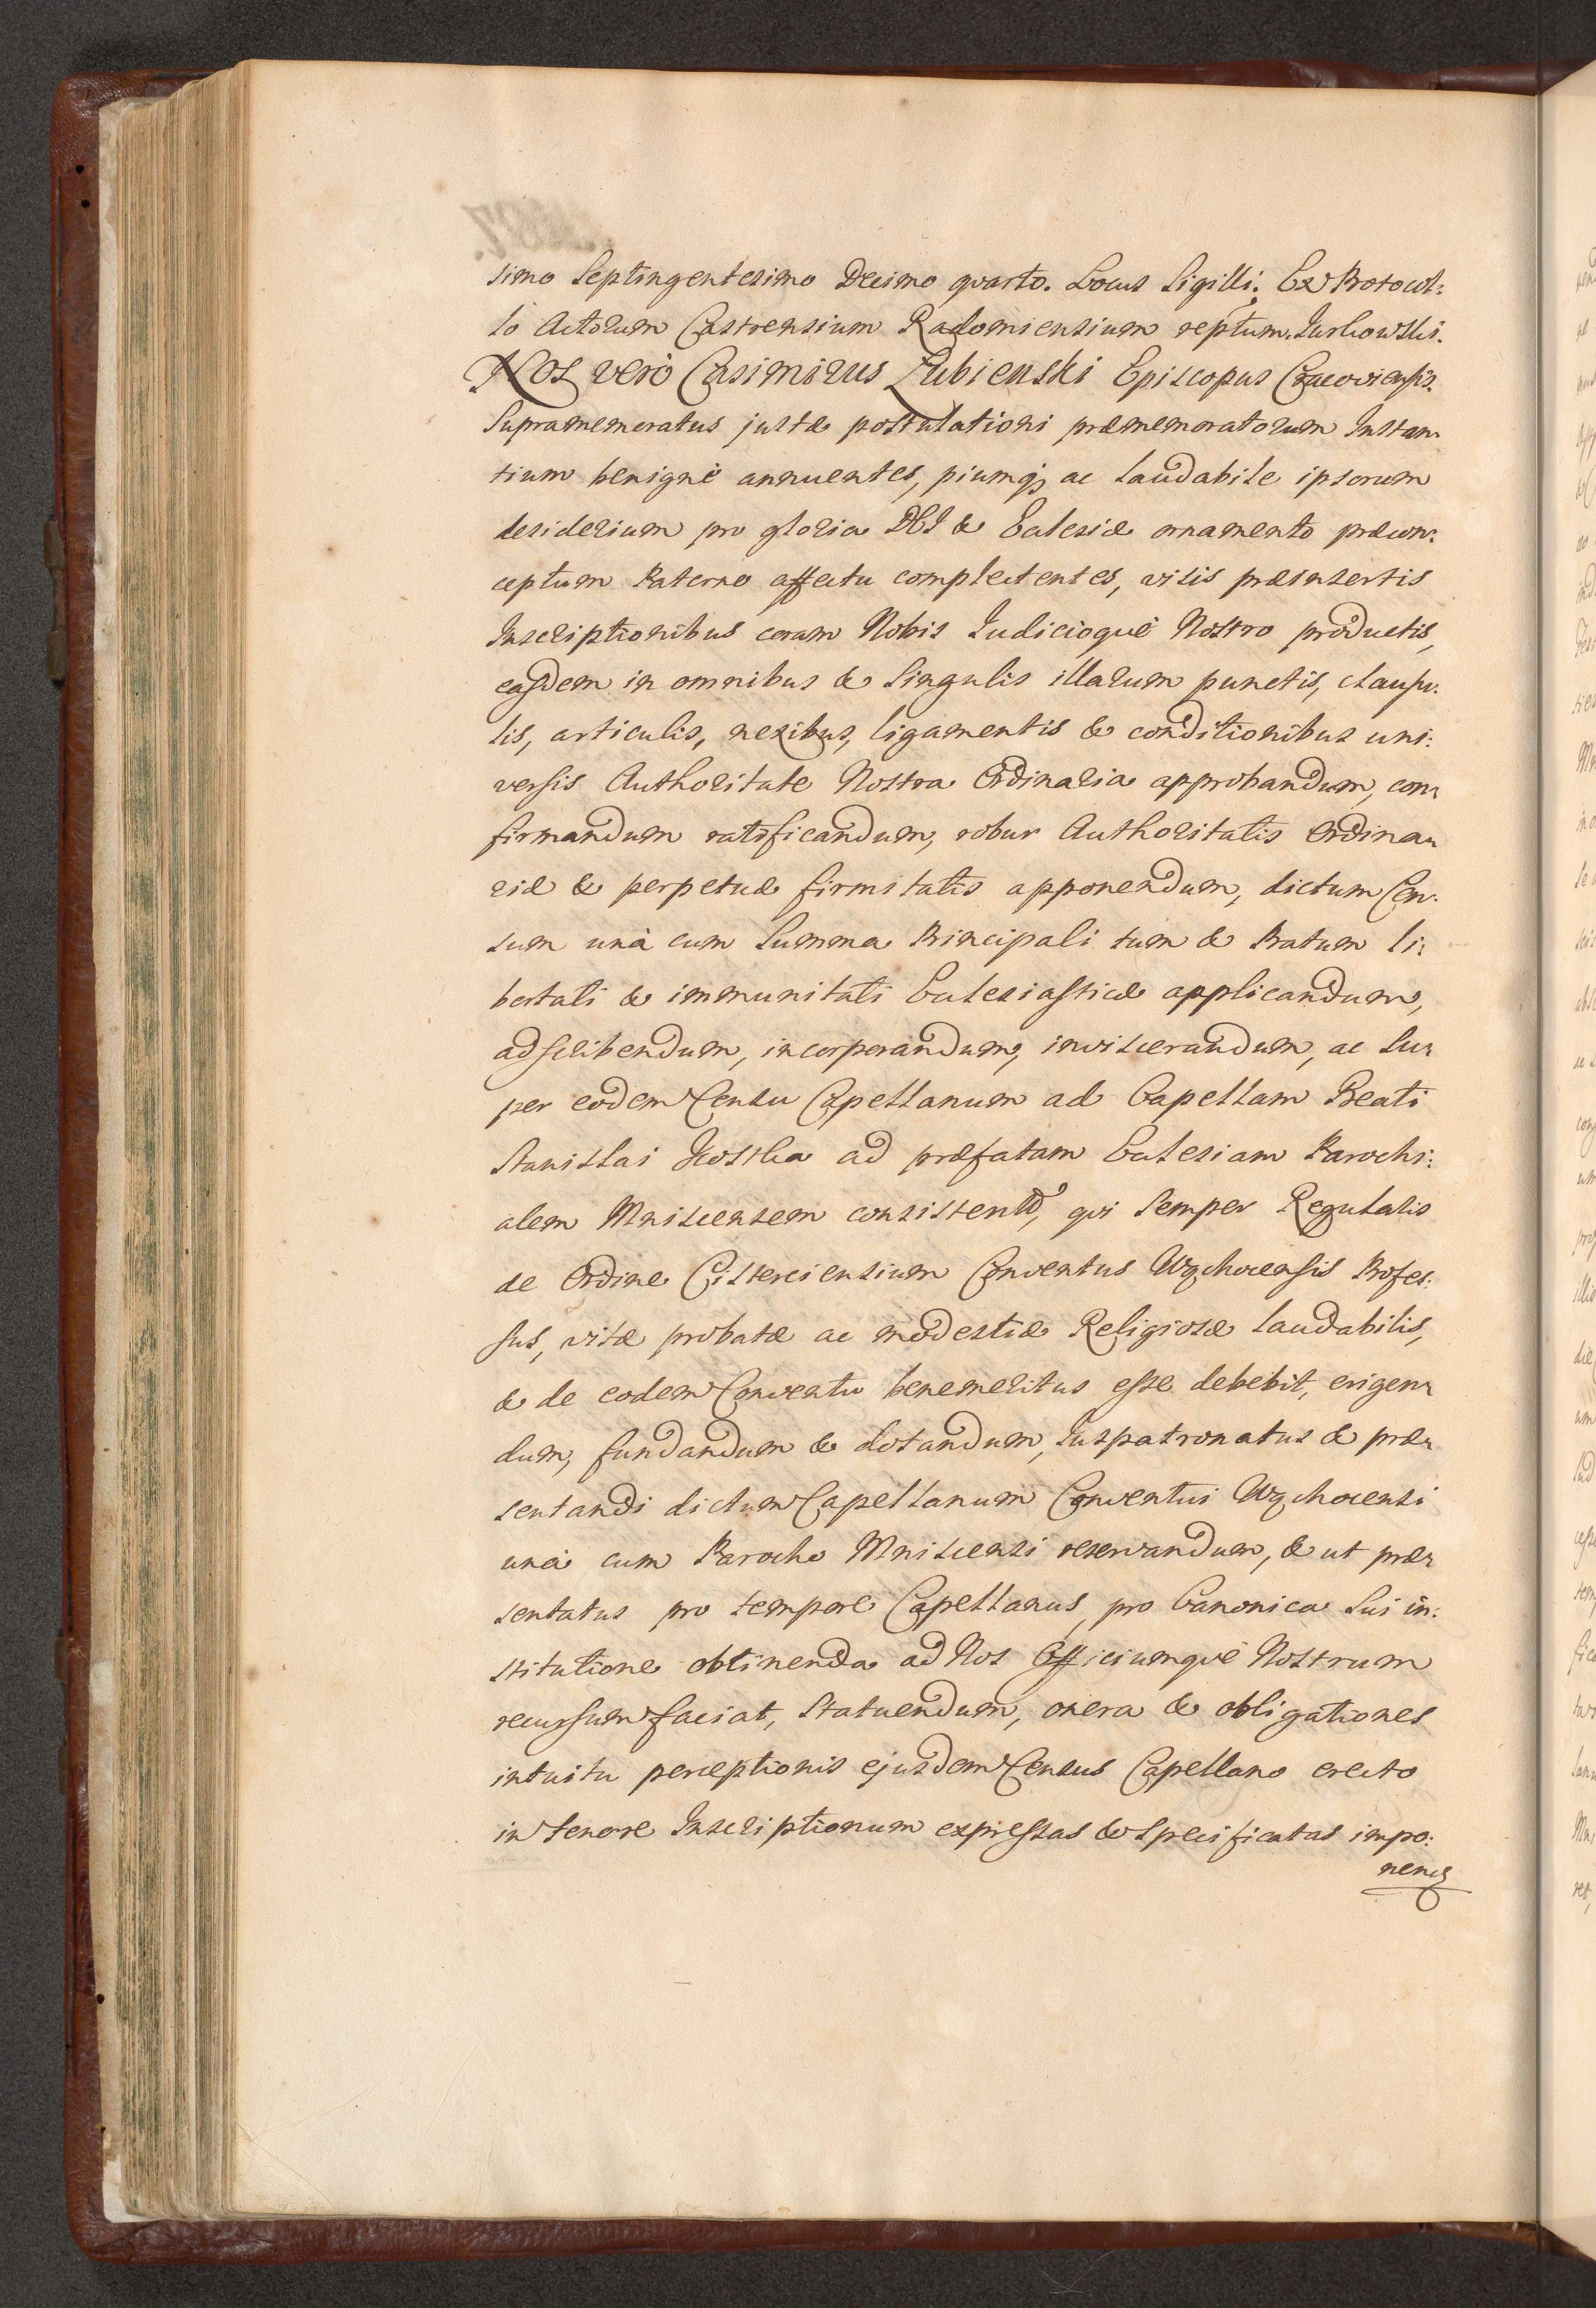 simo Septingentesimo Decimo quarto. Locus Sigilli. Ex Protocol:
lo Actorum Castrensium Radomiensium reptum.
Nos verò Casimirus Łubienski Episcopus Cracoviensis.
Supramemoratus justæ postulationi præmemoratorum Instan:
tium benignè annuentes, piumq; ac laudabile ipsorum
desiderium pro gloria DEI & Eclesiæ ornamento præcon:
ceptum Paterno affectu complectentes, visis præinsertis
Inscriptionibus coram Nobis Iudicioque Nostro productis,
easdem in omnibus & Singulis illarum punctis, clausu:
lis, articulis, nexibus, ligamentis & conditionibus uni:
versis Authoritate Nostra Ordinaria approbandum, con:
firmandum ratificandum, robur Authoritatis Ordina:
riæ & perpetuæ firmitatis apponendum, dictum Cen:
sum unà cum Summa Principali tum & Pratum li:
bertati & immunitati Eclesiasticæ applicandum,
adscribendum, incorporandum, inviscerandum, ac Su:
per eodem Censu Capellanum ad Capellam Beati
Stanislai Kostka ad præfatam Eclesiam Parochi:
alem Mniscensem consistentem, qui Semper Regularis
de Ordine Cisterciensium Conventus Wąchocensis Profes:
sus, vitæ probatæ ac modestiæ Religiosæ laudabilis,
& de eodem Conventu benemeritus esse debebit, erigen:
dum, fundandum & dotandum, Iuspatronatus & præ:
sentandi dictum Capellanum Conventui Wąchocensi
unà cum Parocho Mniscensi reservandum, & ut præ:
sentatus pro tempore Capellanus, pro Canonica Sui in:
stitutione obtinenda ad Nos Officiumque Nostrum
recursum faciat, Statuendum, onera & obligationes
intuitu perceptionis ejusdem Census Capellano erecto
in tenore Inscriptionum expressas & Specificatas impo:
nend